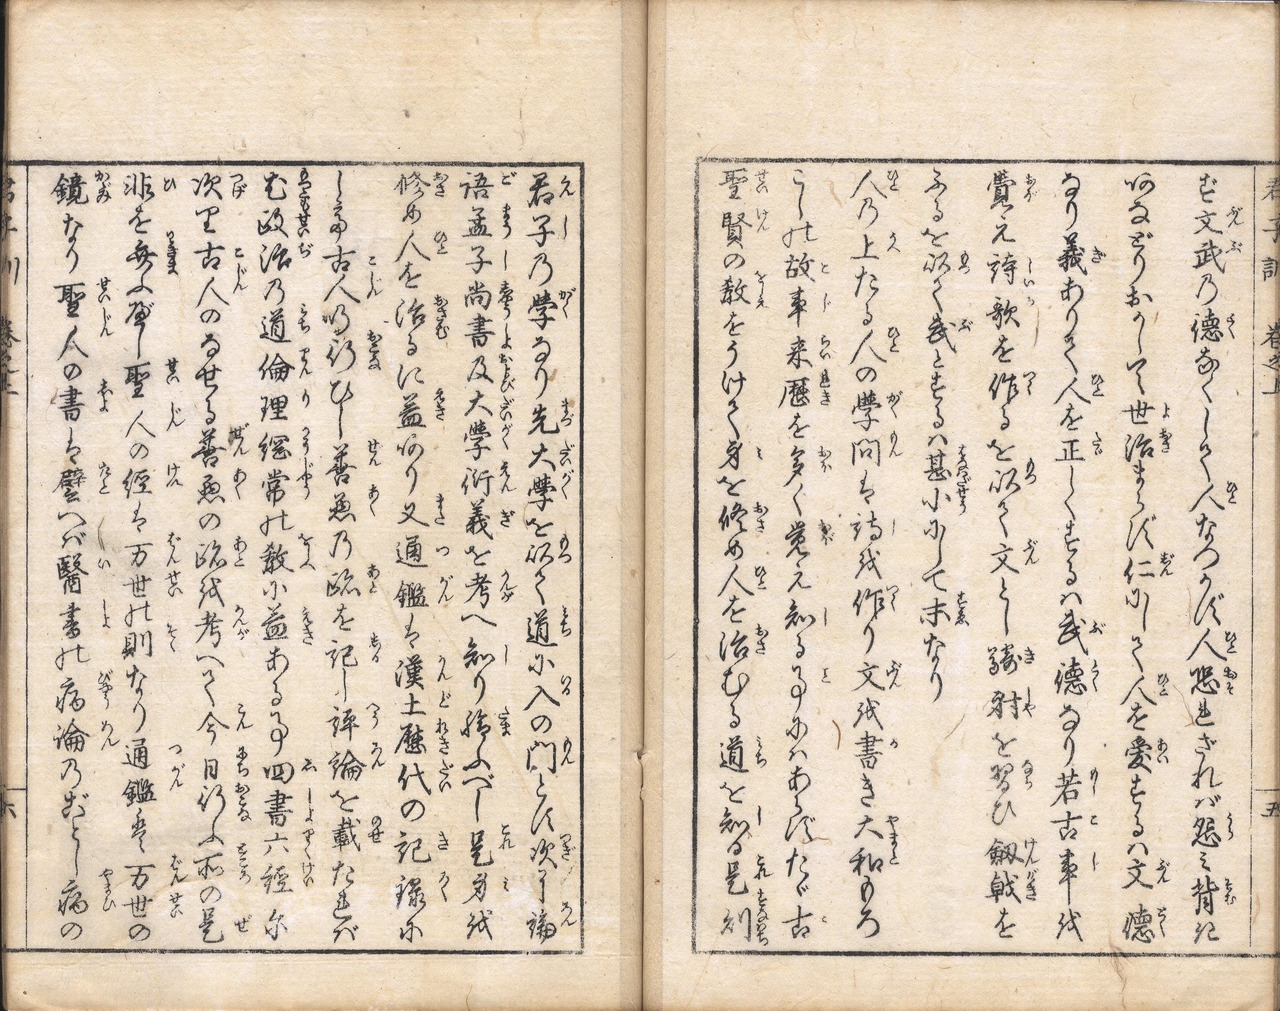 君子訓 巻之上 五
ず文武乃徳なくしては人なつかず人恐れざれば怨み背き
あなどりおかして世治まらず仁にして人を愛するは文徳
なり義ありて人を正しくするは武徳なり若古事を
覺え詩歌を作るを以て文とし騎射を習ひ劔戟を
ふるを以て武とするは甚小にして末なり
人乃上たる人の學問は詩を作り文を書き大和もろ
こしの故事来歴を多く覚え知る事にはあらずたゞ古
聖賢の教をうけて身を修め人を治むる道を知る是則
君子乃學なり先大學を以て道に入の門とす次に論
語孟子尚書及大學衍義を考へ知り給ふべし是身を
修め人を治るに益あり又通鑑は漢土歴代の記録に
して古人の行ひし善惡乃跡を記し評論を載たれば
む政治乃道倫理綱常の教に益ある事四書六經に
次り古人のなせる善惡の跡を考へて今日行ふ所の是
非を無ふ聖人の経は万世の則なり通鑑は万世の
鏡なり聖人の書は譬へば醫書の病論乃ごとし病の
君子訓 巻之上 六